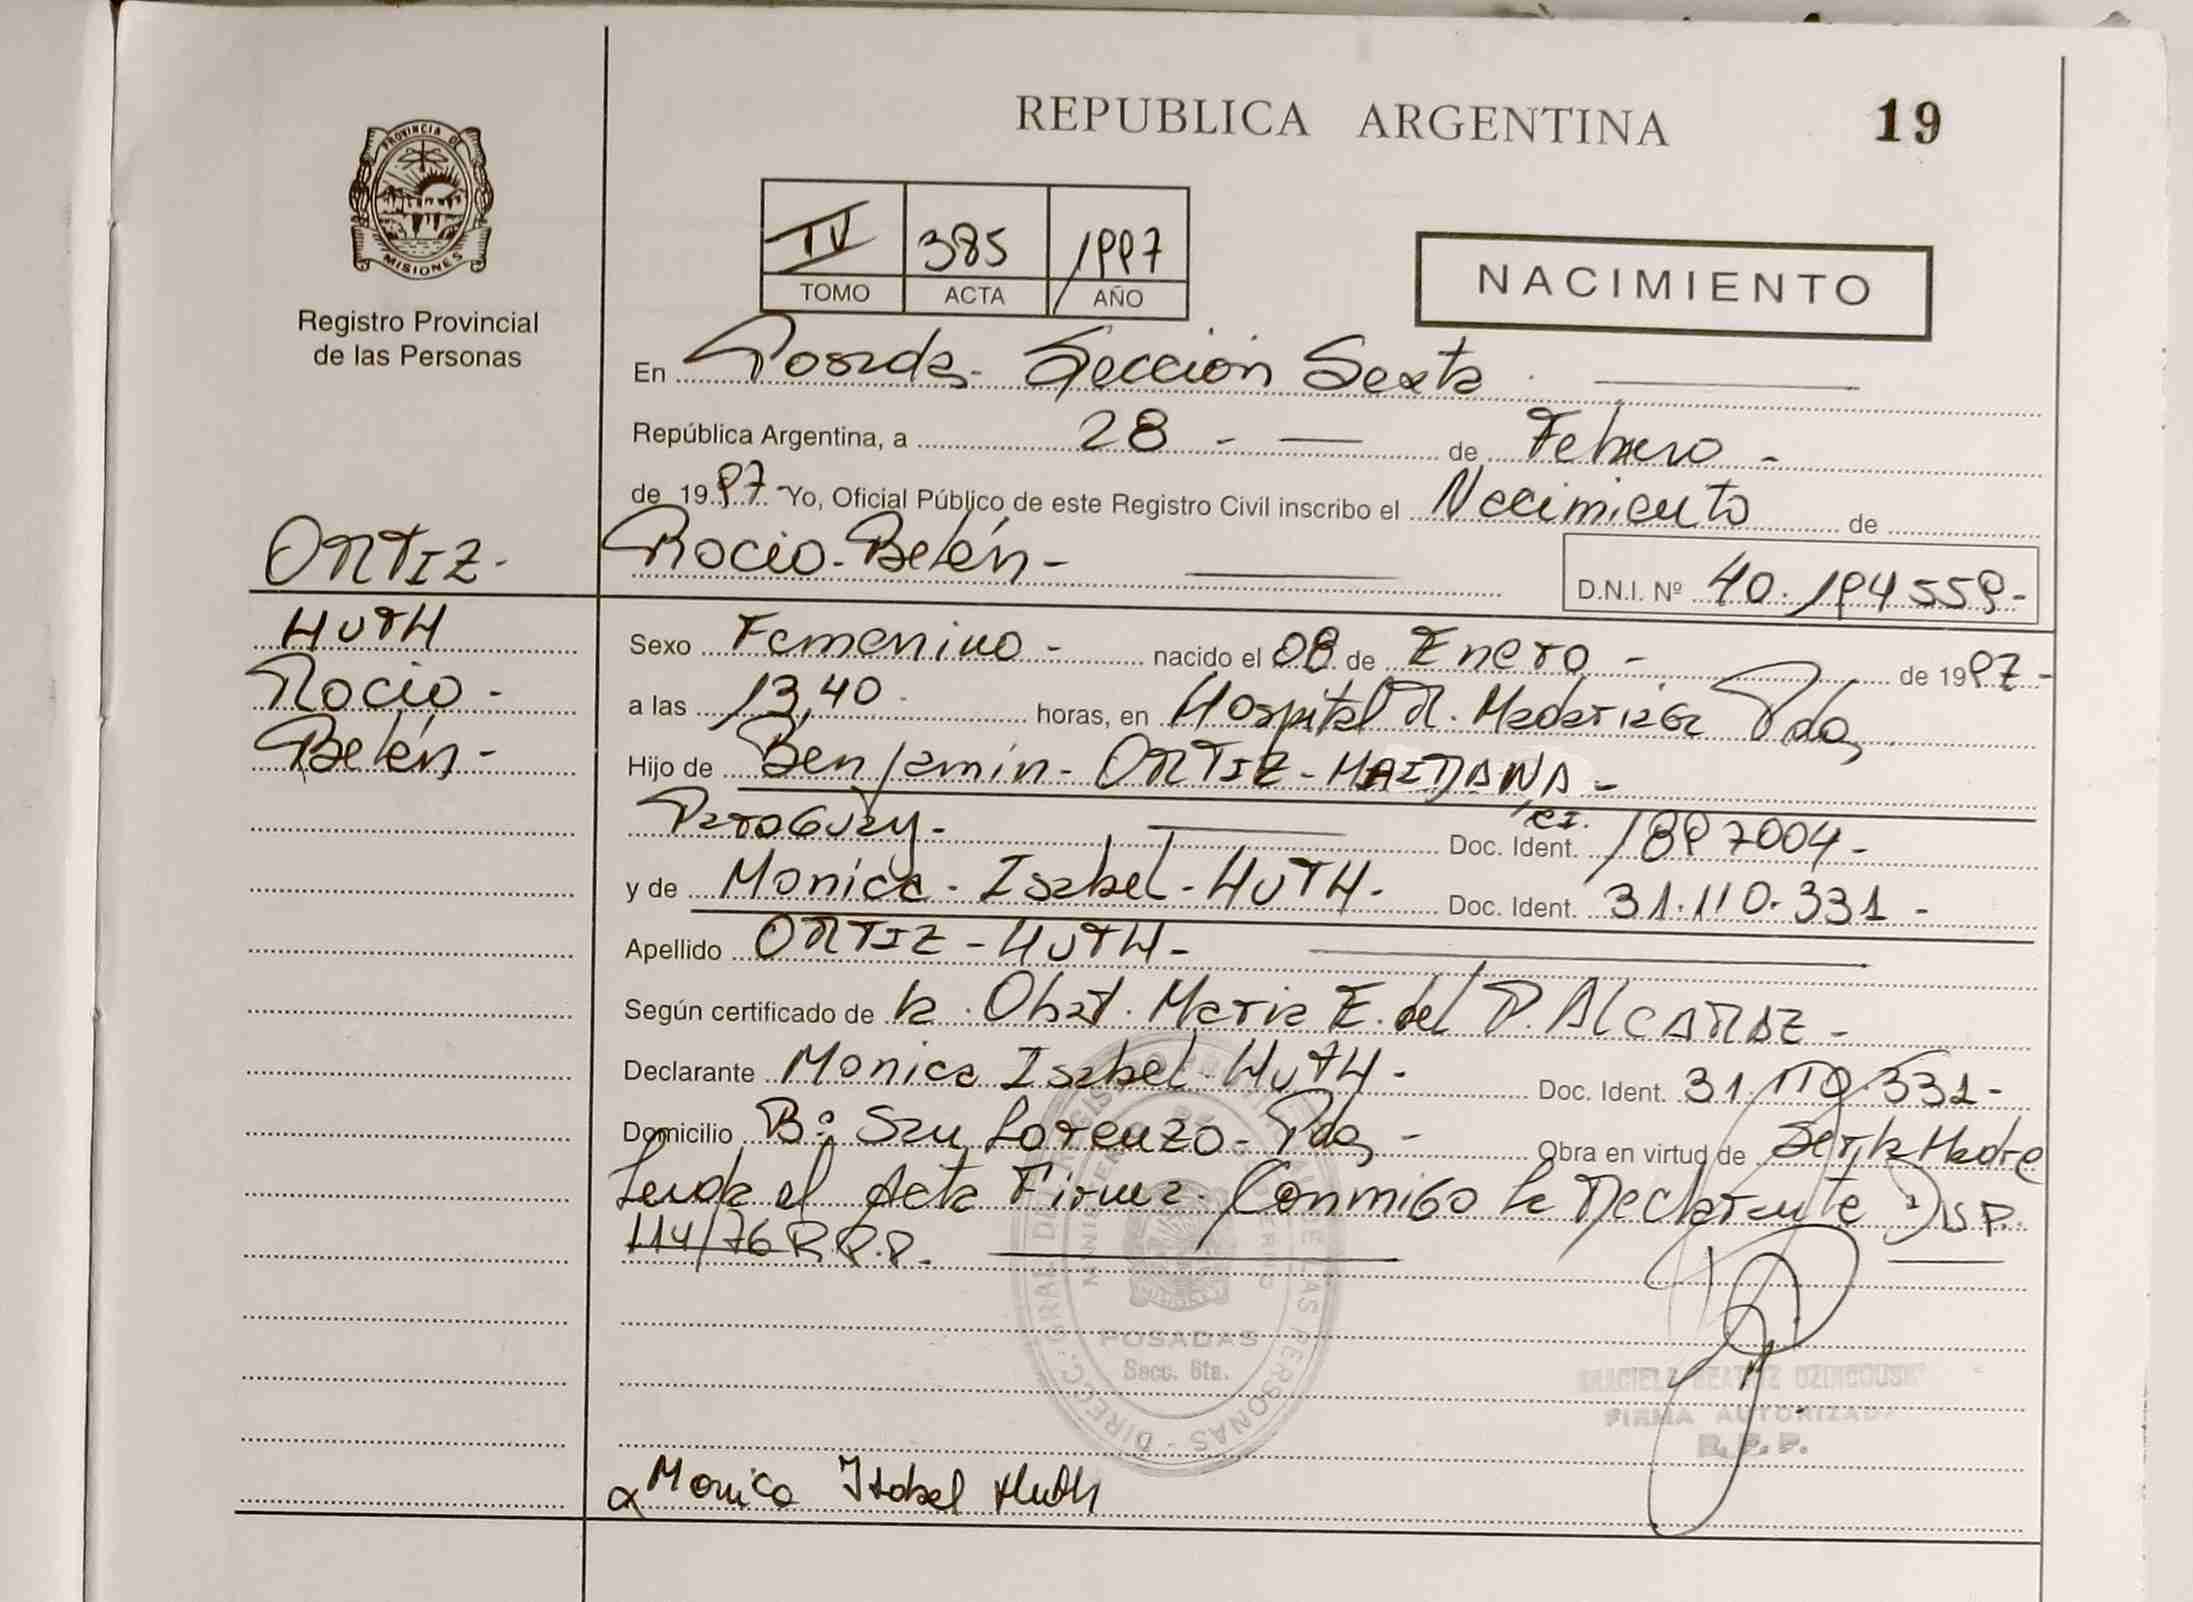 REPUBLICA ARGENTINA
19
PROVINCIA DE
MISIONES
Registro Provincial
de las Personas
IV 385 1997
TOMO ACTA AÑO
NACIMIENTO
En Posadas - Sección Sexta.
República Argentina, a 28 - de Febrero -
de 1997 - Yo, Oficial Público de este Registro Civil inscribo el Nacimiento de
Rocio - Belén -
D.N.I. Nº 40.194559-
ORTIZ -
HUTH
Rocio -
Belén -
Sexo Femenino - nacido el 08 de Enero - de 1997 -
a las 13,40 horas, en Hospital R. Madariaga Pdas
Hijo de Benjamin - ORTIZ - MAIDANA -
Paraguay - Doc. Ident. CI. 1897004 -
y de Monica - Isabel - HUTH - Doc. Ident. 31.110.331 -
Apellido ORTIZ - HUTH -
Según certificado de la Obst. Maria E. del P. ALCARAZ -
Declarante Monica Isabel HUTH - Doc. Ident. 31.110.331 -
Domicilio Bº San Lorenzo - Pdas - Obra en virtud de Ser la Madre
Leida el Acta Firma Conmigo la Declarante Disp.
114/76 R.P.P.
DIREC. GRAL. DEL REGISTRO PROVINCIAL DE LAS PERSONAS
MINISTERIO DE GOBIERNO
POSADAS
Secc. 6ta.
GRACIELA BEATRIZ
FIRMA AUTORIZADA
R.P.P.
Monica Isabel Huth